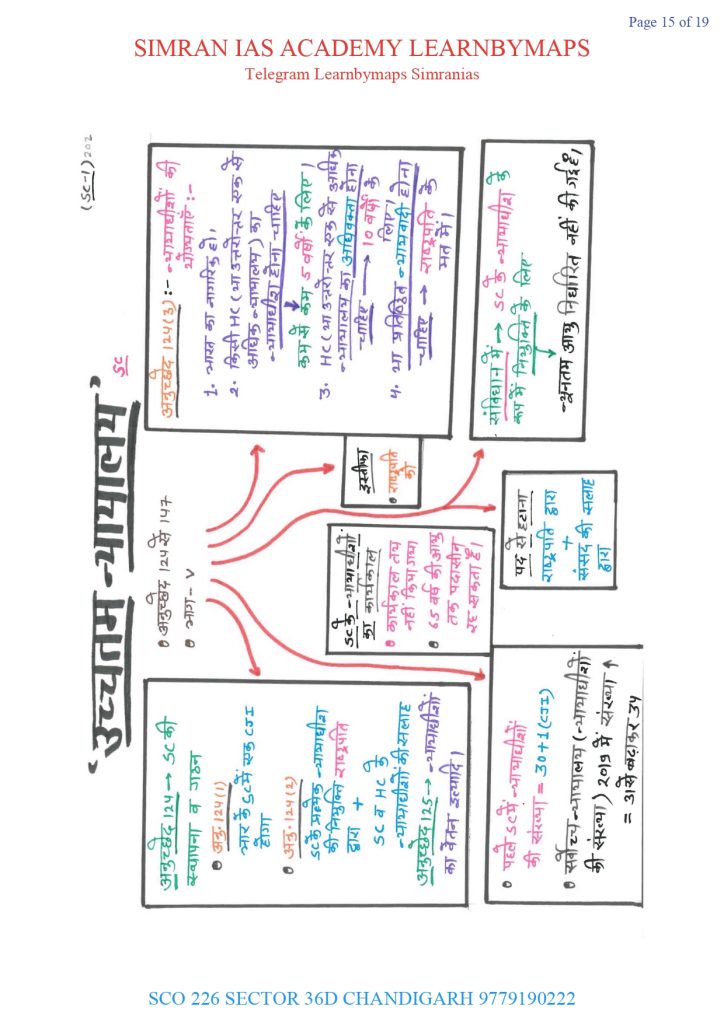 Page 15 of 19
SIMRAN IAS ACADEMY LEARNBYMAPS
Telegram Learnbymaps Simranias
(SC-1)202
'उच्चतम न्यायालय'
SC
• अनुच्छेद 124 से 147
• भाग - V
अनुच्छेद 124 → SC की
स्थापना व गठन
• अनु. 124(1)
भार के SC में एक CJI
होगा
• अनु. 124(2)
SC के प्रत्येक न्यायाधीश
की नियुक्ति राष्ट्रपति
द्वारा +
SC व HC के
न्यायाधीशों की सलाह
अनुच्छेद 125 → न्यायाधीशों
का वेतन इत्यादि।
SC के न्यायाधीशों
का कार्यकाल
• कार्यकाल तय
नहीं किया गया
• 65 वर्ष की आयु
तक पदासीन
रह सकता है।
इस्तीफा
• राष्ट्रपति
को
अनुच्छेद 124(3) :- न्यायाधीशों की
योग्यताएँ :-
1. भारत का नागरिक हो।
2. किसी HC (या उत्तरोत्तर एक से
अधिक न्यायालय) का
न्यायाधीश होना चाहिए
↓
कम से कम 5 वर्षों के लिए।
3. HC (या उत्तरोत्तर एक से अधिक
न्यायालय का अधिवक्ता होना
चाहिए → 10 वर्षों के
लिए।
4. या प्रतिष्ठित न्यायवादी होना
चाहिए → राष्ट्रपति के
मत में।
• पहले SC में न्यायाधीशों
की संख्या = 30+1 (CJI)
• सर्वोच्च न्यायालय (न्यायाधीशों
की संख्या) 2019 में संख्या ↑
= 31 से बढ़ाकर 34
पद से हटाना
राष्ट्रपति द्वारा
+
संसद की सलाह
द्वारा
संविधान में → SC के न्यायाधीश के
रूप में नियुक्ति के लिए
↓
न्यूनतम आयु निर्धारित नहीं की गई है।
SCO 226 SECTOR 36D CHANDIGARH 9779190222